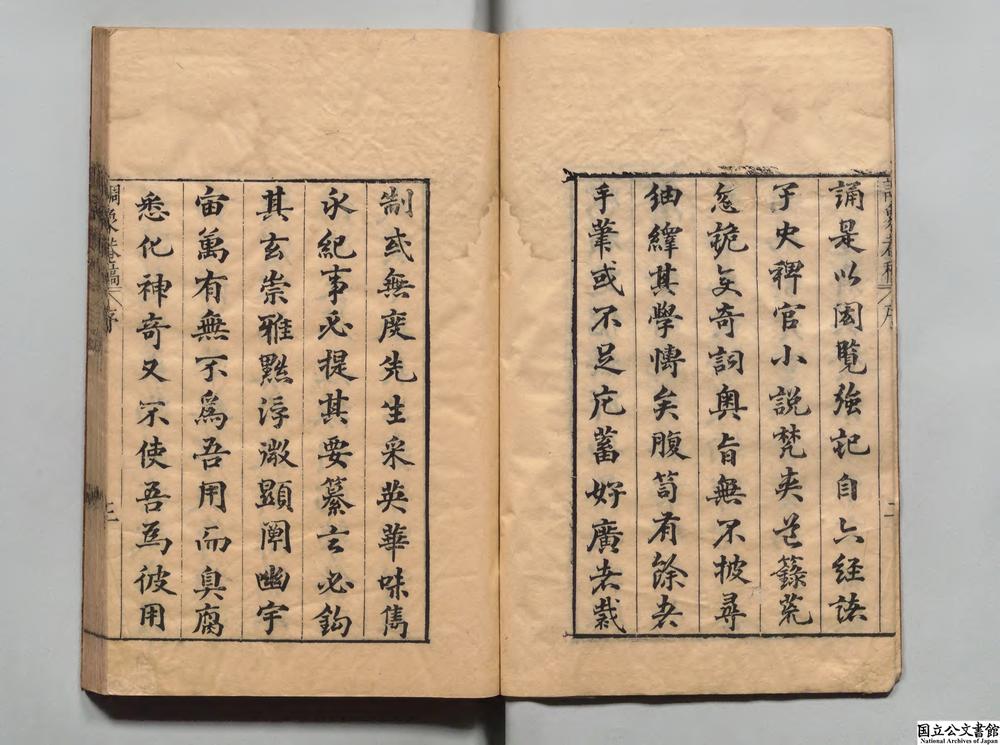 誦是以閎覽強記自六經諸
子史稗官小說梵夾芝籙荒
忽詭文奇詞奧旨無不披尋
紬繹其學慱矣腹笥有餘者
手葦或不足庀蓄好廣者裁
二
制或無度先生采英華味雋
永紀事必提其要纂言必鉤
其玄崇雅黜浮微顯闡幽宇
宙萬有無不爲吾用而臭腐
悉化神奇又不使吾爲彼用
調象菴稿 序
三
国立公文書館
National Archives of Japan